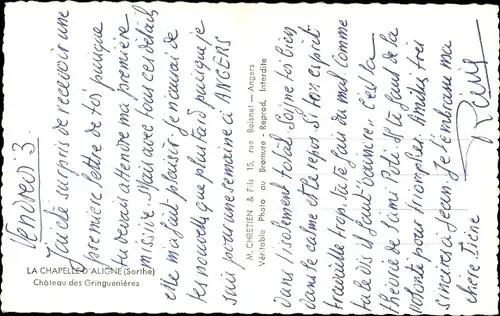 Vendredi 3.
J'ai été surpris de recevoir une
première lettre de toi puisque
tu devais attendre ma première
missive. Mais avec tous ces détails
elle m'a fait plaisir. Je n'aurai de
tes nouvelles que plus tard puisque je
suis pour une semaine ici ANGERS
dans l'isolement total. Soigne toi bien
dans le calme et le repos. Si ton esprit
travaille trop, tu te fais du mal comme
tu le dis il faut "dormir" c'est la
théorie de l'ami Poli. Il te faut de la
volonté pour triompher. Amitiés très
sincères à Jean. Je t'embrasse ma
chère Irène
LA CHAPELLE D'ALIGNE (Sarthe)
Château des Gringuenières
M. CHRETIEN & Fils 15, rue Boisnet — Angers
Véritable Photo au Bromure - Reprod. Interdite